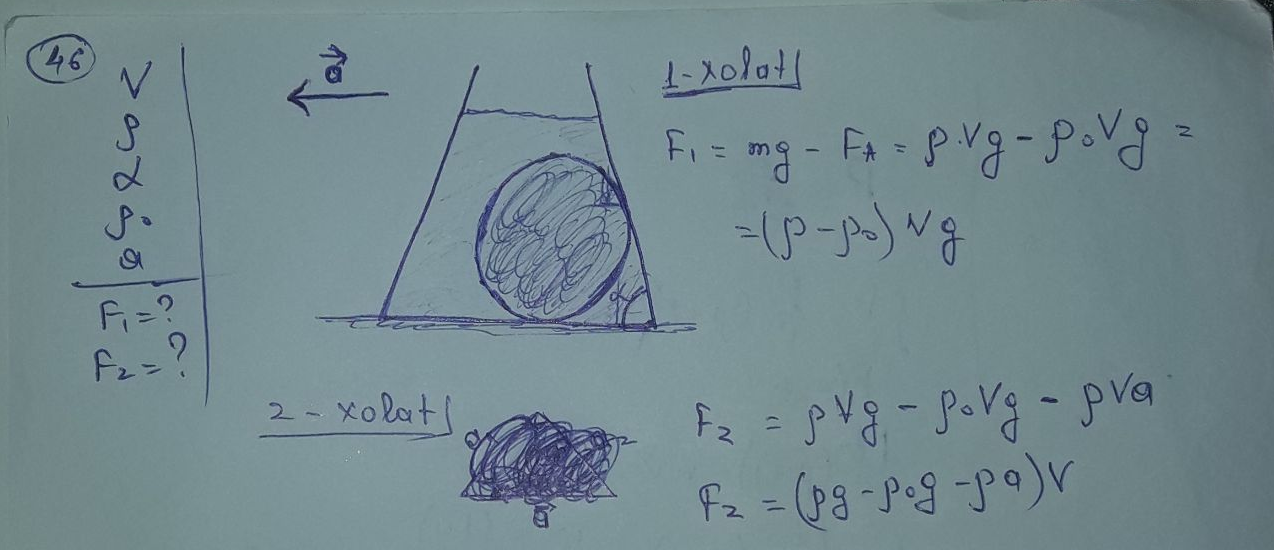 46
V
ρ
α
ρ₀
a
F₁ = ?
F₂ = ?
a⃗
α
1-xolat
F₁ = mg - F_A = ρ·Vg - ρ₀Vg =
= (ρ - ρ₀) Vg
2-xolat
F₂ = ρVg - ρ₀Vg - ρVa
F₂ = (ρg - ρ₀g - ρa)V